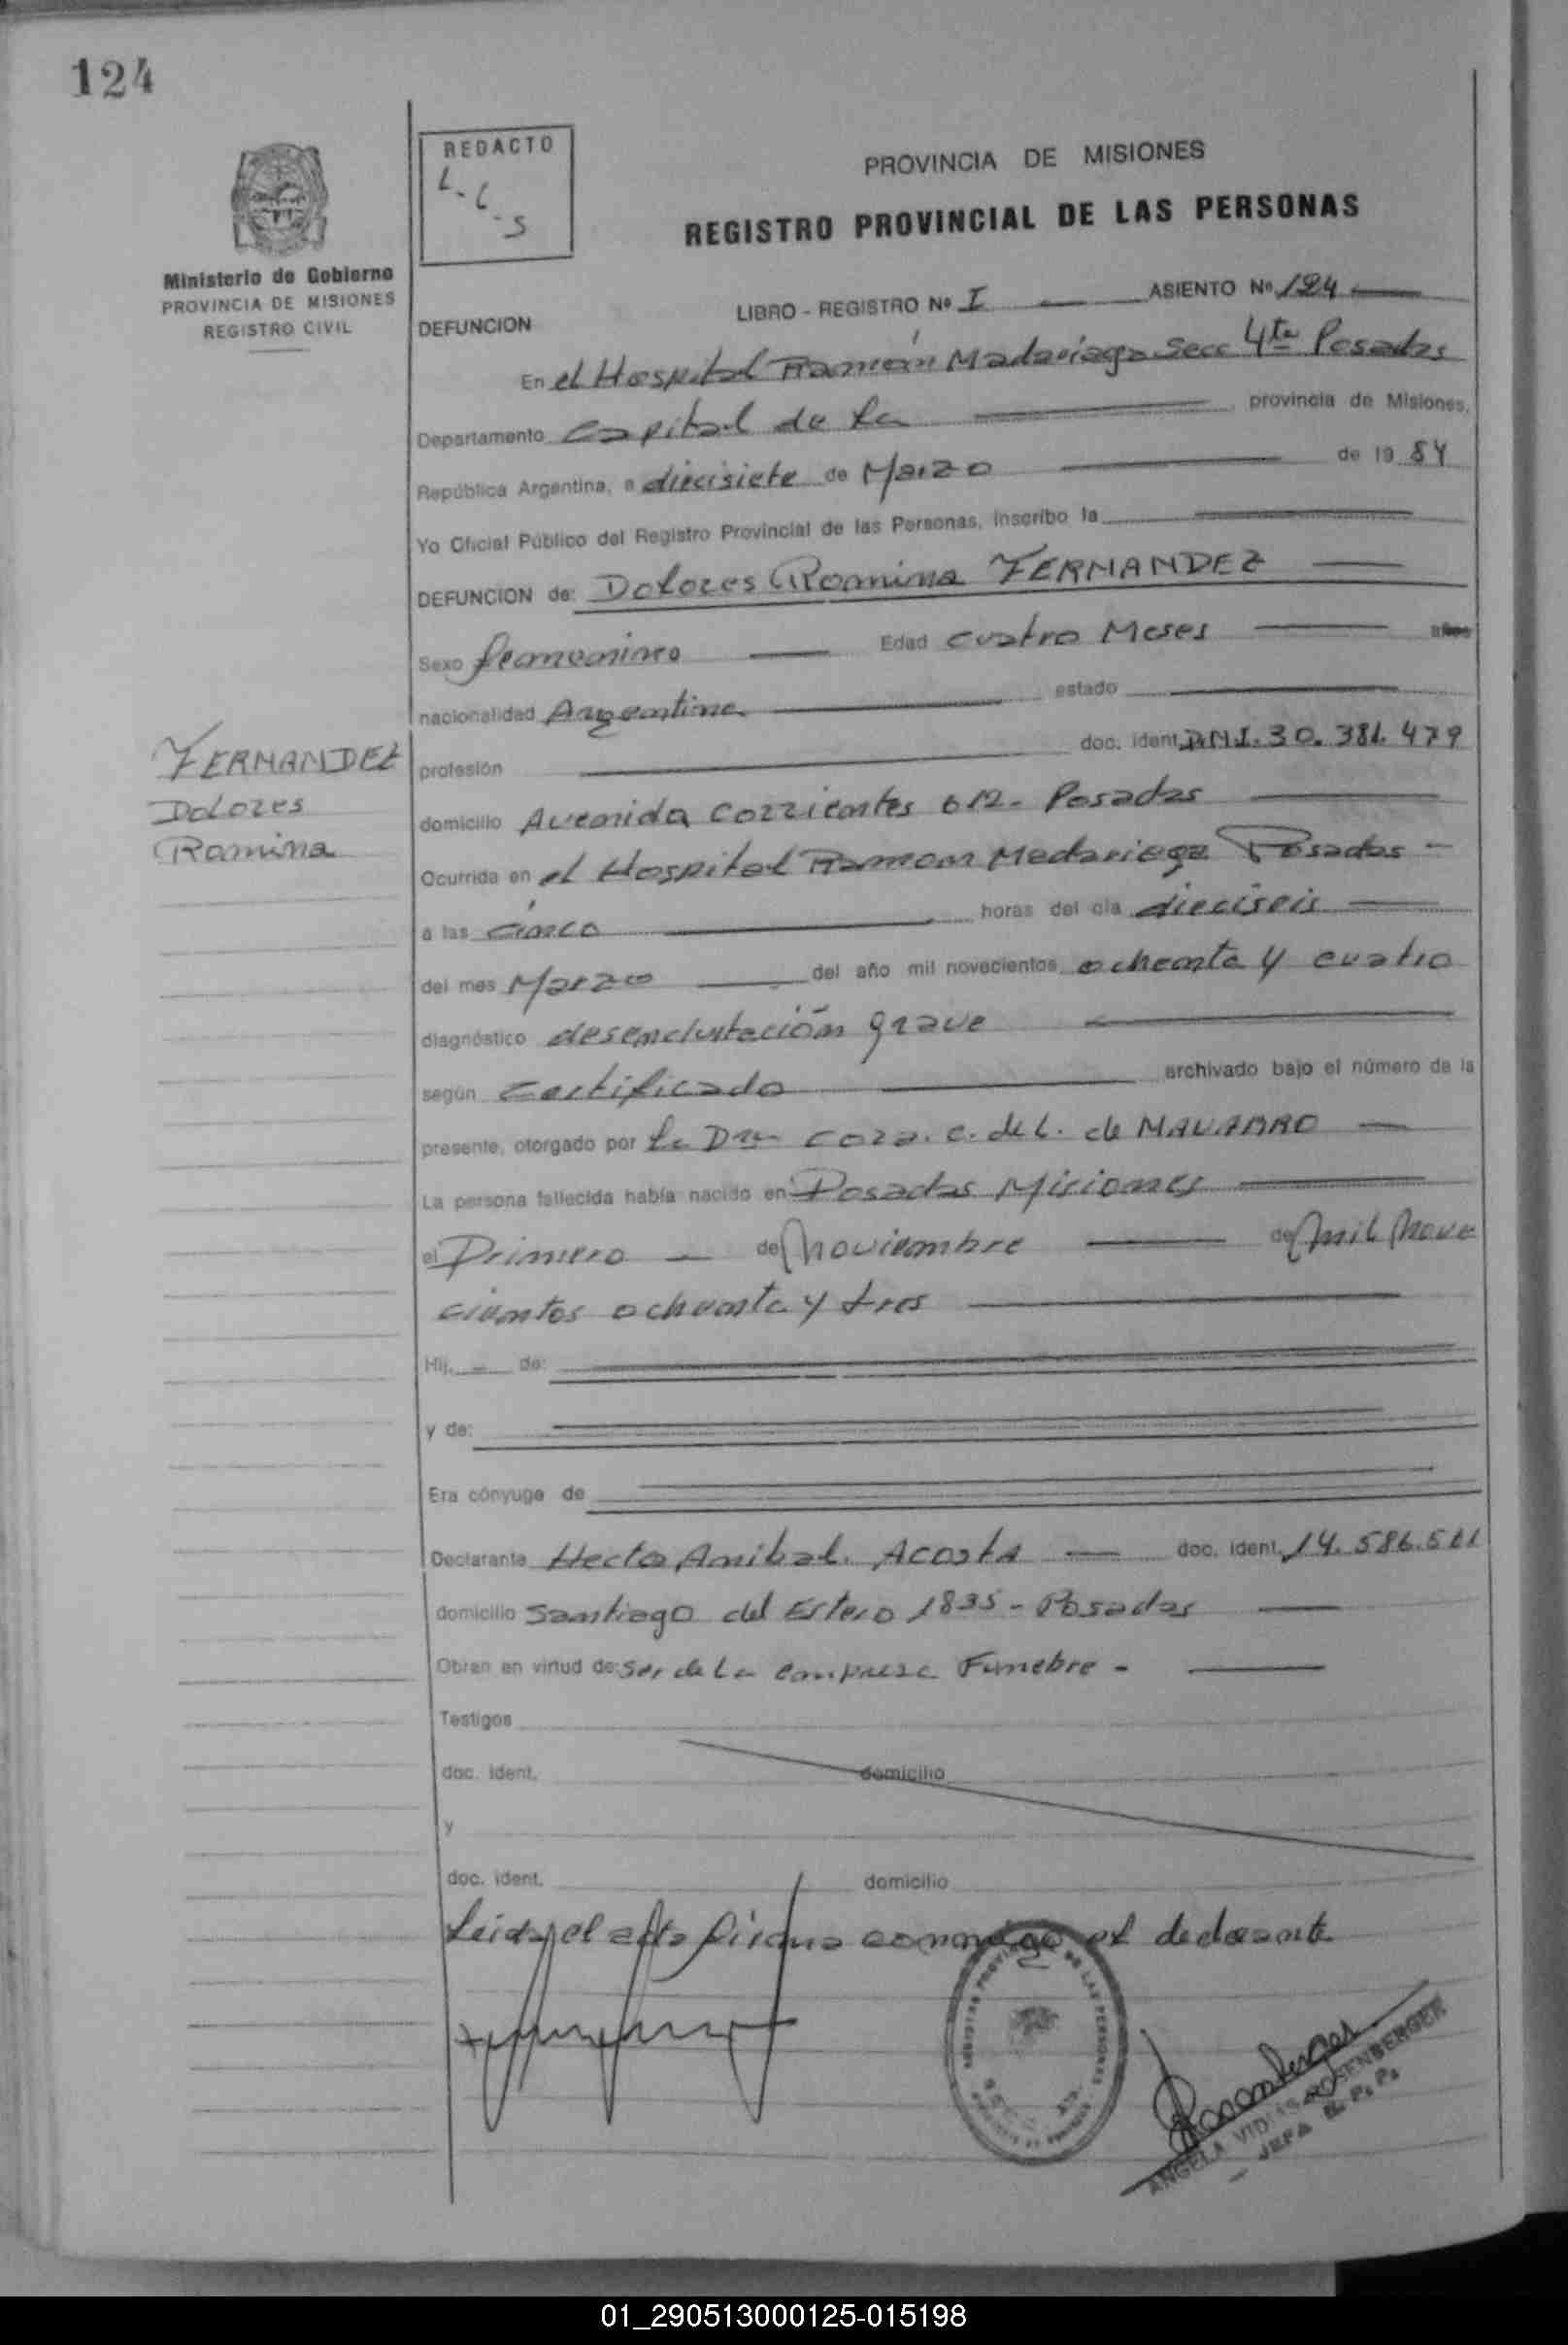 124
REDACTO
L-L-S
Ministerio de Gobierno
PROVINCIA DE MISIONES
REGISTRO CIVIL
PROVINCIA DE MISIONES
REGISTRO PROVINCIAL DE LAS PERSONAS
DEFUNCION
LIBRO - REGISTRO Nº I ASIENTO Nº 124
En el Hospital Ramón Madariaga Secc 4ta Posadas
Departamento Capital de la provincia de Misiones,
República Argentina, a diecisiete de Marzo de 19 84
Yo Oficial Público del Registro Provincial de las Personas, inscribo la
DEFUNCION de: Dolores Romina FERNANDEZ
Sexo femenino Edad cuatro Meses años
nacionalidad Argentina estado
FERNANDEZ
Dolores
Romina
profesión doc. ident. D.N.I. 30.381.479
domicilio Avenida Corrientes 612- Posadas
Ocurrida en el Hospital Ramon Madariaga Posadas -
a las cinco horas del día dieciseis
del mes Marzo del año mil novecientos ochenta y cuatro
diagnóstico grave
según certificado archivado bajo el número de la
presente, otorgado por la Dra Cora. C. de L. de NAVARRO
La persona fallecida había nacido en Posadas Misiones
el Primero de noviembre de mil nove
cientos ochenta y tres
Hij. de:
y de:
Era cónyuge de
Declarante Hector Anibal. Acosta doc. ident. 14.586.561
domicilio Santiago del Estero 1835 - Posadas
Obran en virtud de: ser de la empresa Funebre -
Testigos
doc. ident. domicilio
y
doc. ident. domicilio
Leida el acta firma conmigo el declarante
REGISTRO PROVINCIAL DE LAS PERSONAS
Rosenberger
ANGELA ROSENBERGER
- JEFA R. P. P.
01_290513000125-015198